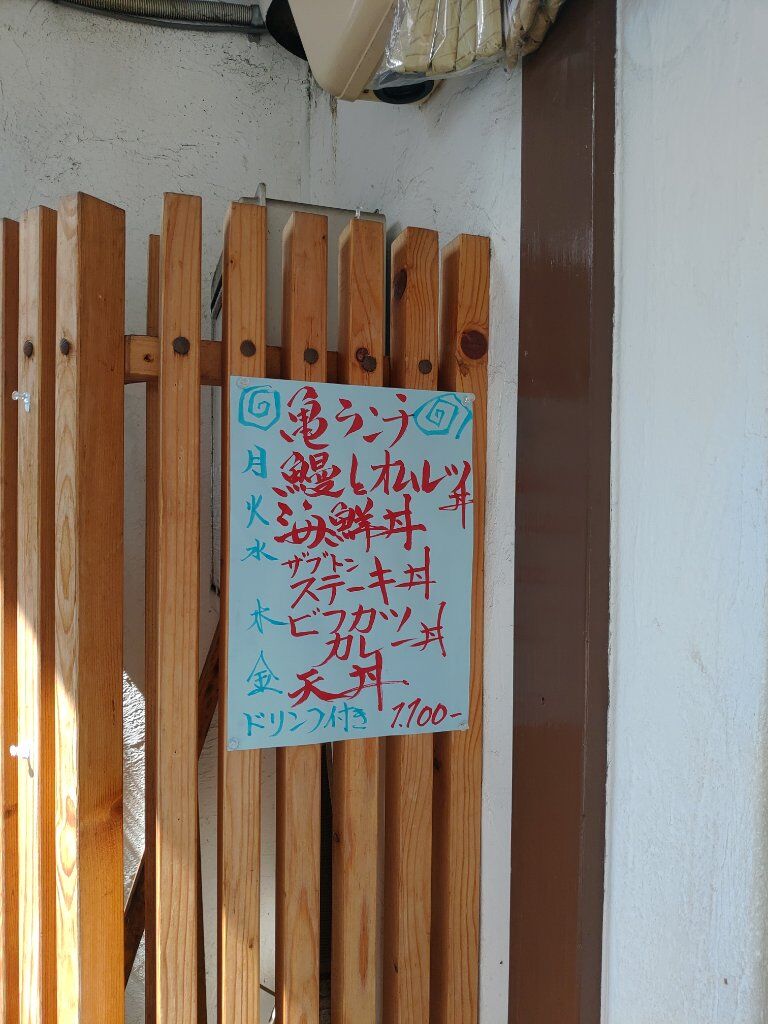 亀ランチ
月 鰻とオムレツ丼
火 海鮮丼
水 ザブトン
ステーキ丼
木 ビフカツ
カレー丼
金 天丼
ドリンク付き 1.100-